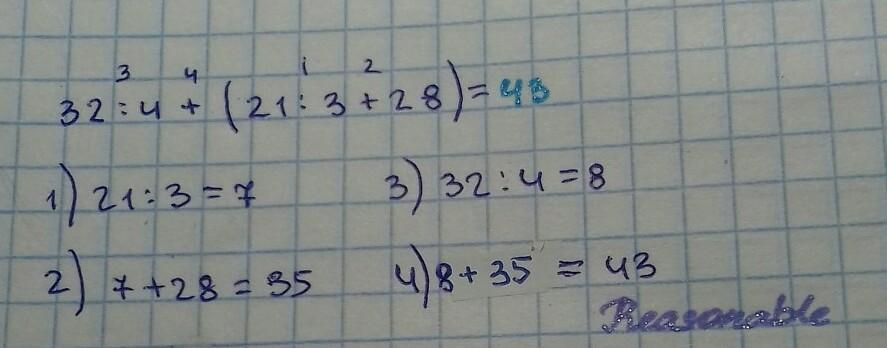 3 4 1 2
32 : 4 + (21 : 3 + 28) = 43
1) 21 : 3 = 7 3) 32 : 4 = 8
2) 7 + 28 = 35 4) 8 + 35 = 43
Reasonable